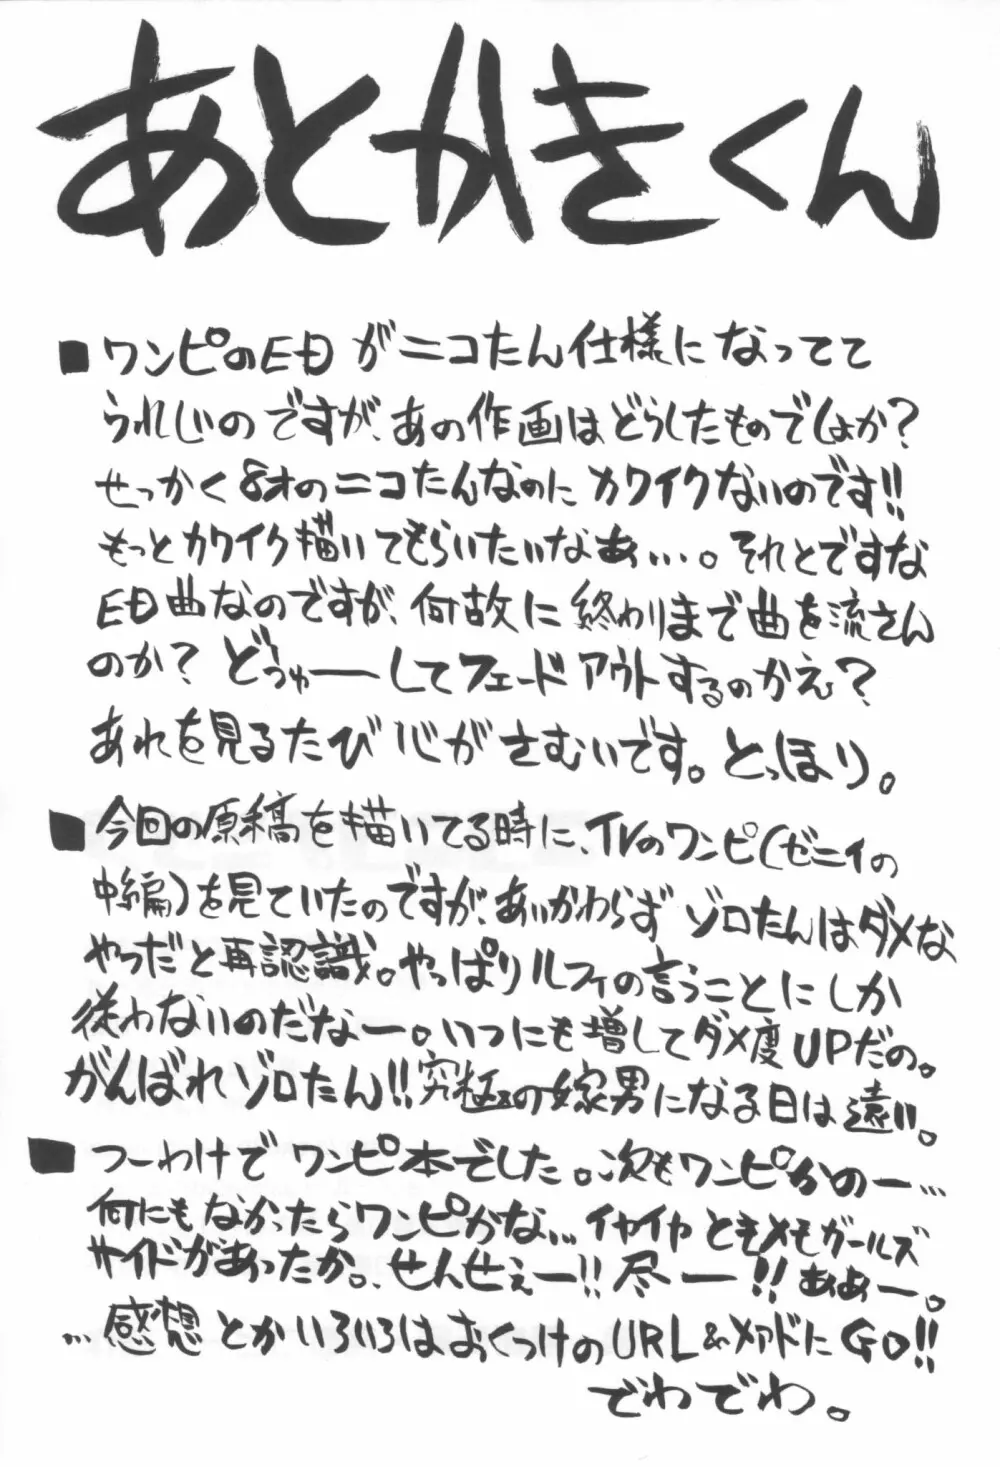 あとがきくん
■ワンピのEDがニコたん仕様になってて
うれしいのですが、あの作画はどうしたものでしょか?
せっかく8才のニコたんなのにカワイクないのです!!
もっとカワイク描いてもらいたいなぁ…。それとですな
ED曲なのですが、何故に終わりまで曲を流さん
のか? どぅゅーーしてフェードアウトするのかえ?
あれを見るたび心がさむいです。とっほり。
■今回の原稿を描いてる時に、TVのワンピ(ゼニィの
中編)を見ていたのですが、あいかわらずゾロたんはダメな
やつだと再認識。やっぱりルフィの言うことにしか
従わないのだなー。いつにも増してダメ度UPだの。
がんばれゾロたん!!究極の嫁男になる日は遠い。
■つーわけでワンピ本でした。次もワンピかのー…
何にもなかったらワンピかな…イヤイヤときメモガールズ
サイドがあったか。せんせぇー!!尽ー!!ああー。
…感想とかいろいろはおくつけのURL&メアドにGO!!
でわでわ。